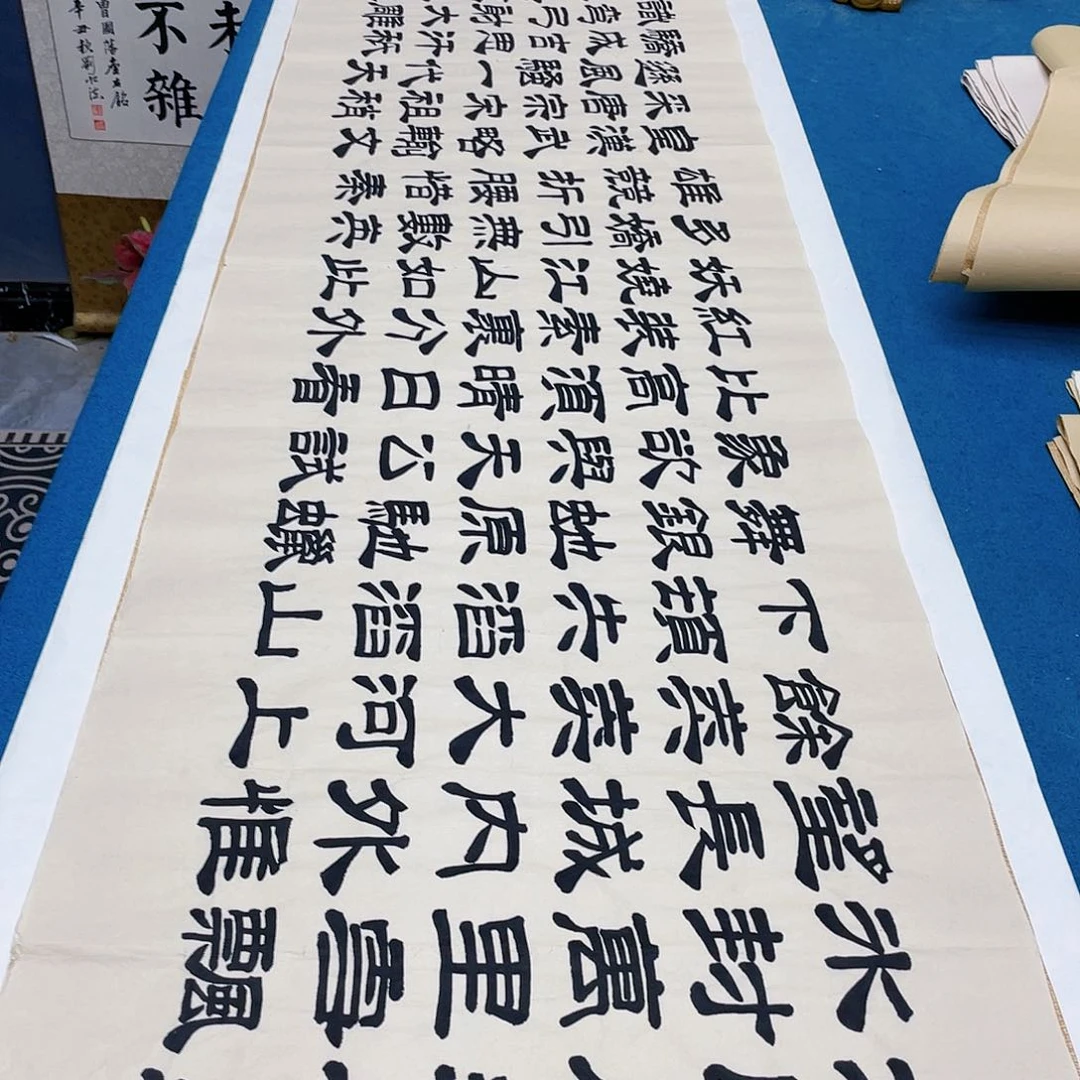 冰封萬里雪飄
望長城内外惟
餘莽莽大河上
下頓失滔滔山
舞銀蛇原馳蠟
象欲與天公試
比高須晴日看
紅裝素裹分外
妖嬈江山如此
多嬌引無數英
雄競折腰惜秦
皇漢武略輸文
采唐宗宋祖稍
遜風騷一代天
驕成吉思汗祇
識彎弓射大雕
未
不雜
曾國藩座右銘
辛丑秋劉